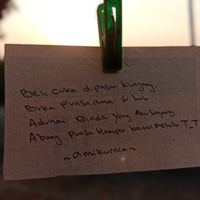 Beli cuka dipasar kunyung
Buka puasa ama si
Aduhai Dinda Yang Aku sayang
Abang Puasa Hampir batal T_T
~amikurnia~